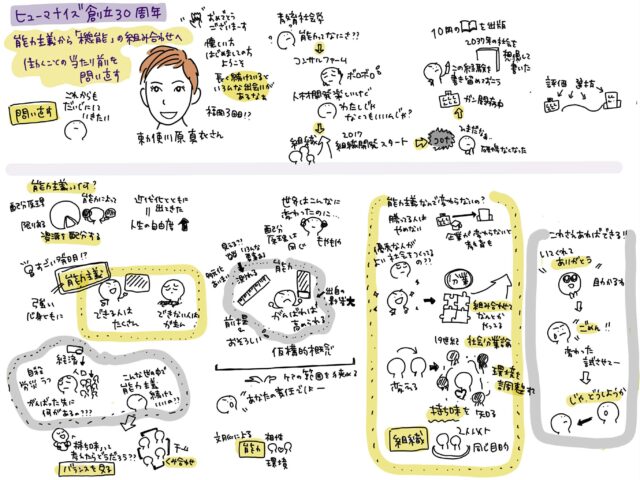 ヒューマナイズ創立30周年
能力主義から「機能」の組み合わせへ
ほんとこての当たり前を
問い直す
問い直す
これからも
だいじにして
いきたい
勅使川原真衣さん
おめでとう
ございまーす
優しい方
はじめましての方
ようこそ
長く続けていると
いろんな出会いが
あるなぁ
福岡3回目!?
能力ってなにさ??
コンサルファーム
ボロボロ
人材開発業だけど
わたしじゃ
なくてもいいんじゃ?
組織
2017
組織開発スタート
コロナ
10冊の
を出版
2037年の社会を
想像して
書いた
この経験を
書き留めておこう
ガン闘病中
ひまだなぁ…
研修なくなった
評価
選抜
能力主義って何?
配分原理
限りある
資源を配分する
能力によって
近代化とともに
出てきた
人生の自由度
すごい発明!?
能力主義
強い
心身ともに
できる人は
たくさん
できない人は
がまん
世界はこんなに
変わったのに…
配分
原理は
同じ
もやもや
能力
がんばれば
高められる
前提
おそろしい
仮構的概念
ケアの範囲を狭める
あなたの責任でしょー
経済
人口
自己
がんばった先に
何があるの???
こんな世の中で
能力主義
続けていいの??
持ち味って
考えたらどうだろう??
バランスを見る
チーム
くみ合わせ
文脈による
能力
相性
環境
能力主義なんで変わらないの?
勝ってる人は
やめない
企業が変わらないと
優秀な人が
よい社会をつくってる
の??
分業
組み合わせて
なんとか
やってる
19世紀
社会分業論
環境を
調整
持ち味を知る
組織
2人以上
同じ目的
これさえあればできる!!
いてくれて
ありがとう
自分からね
ごめん!!
変わった
試させてー
じゃ、どうしようか